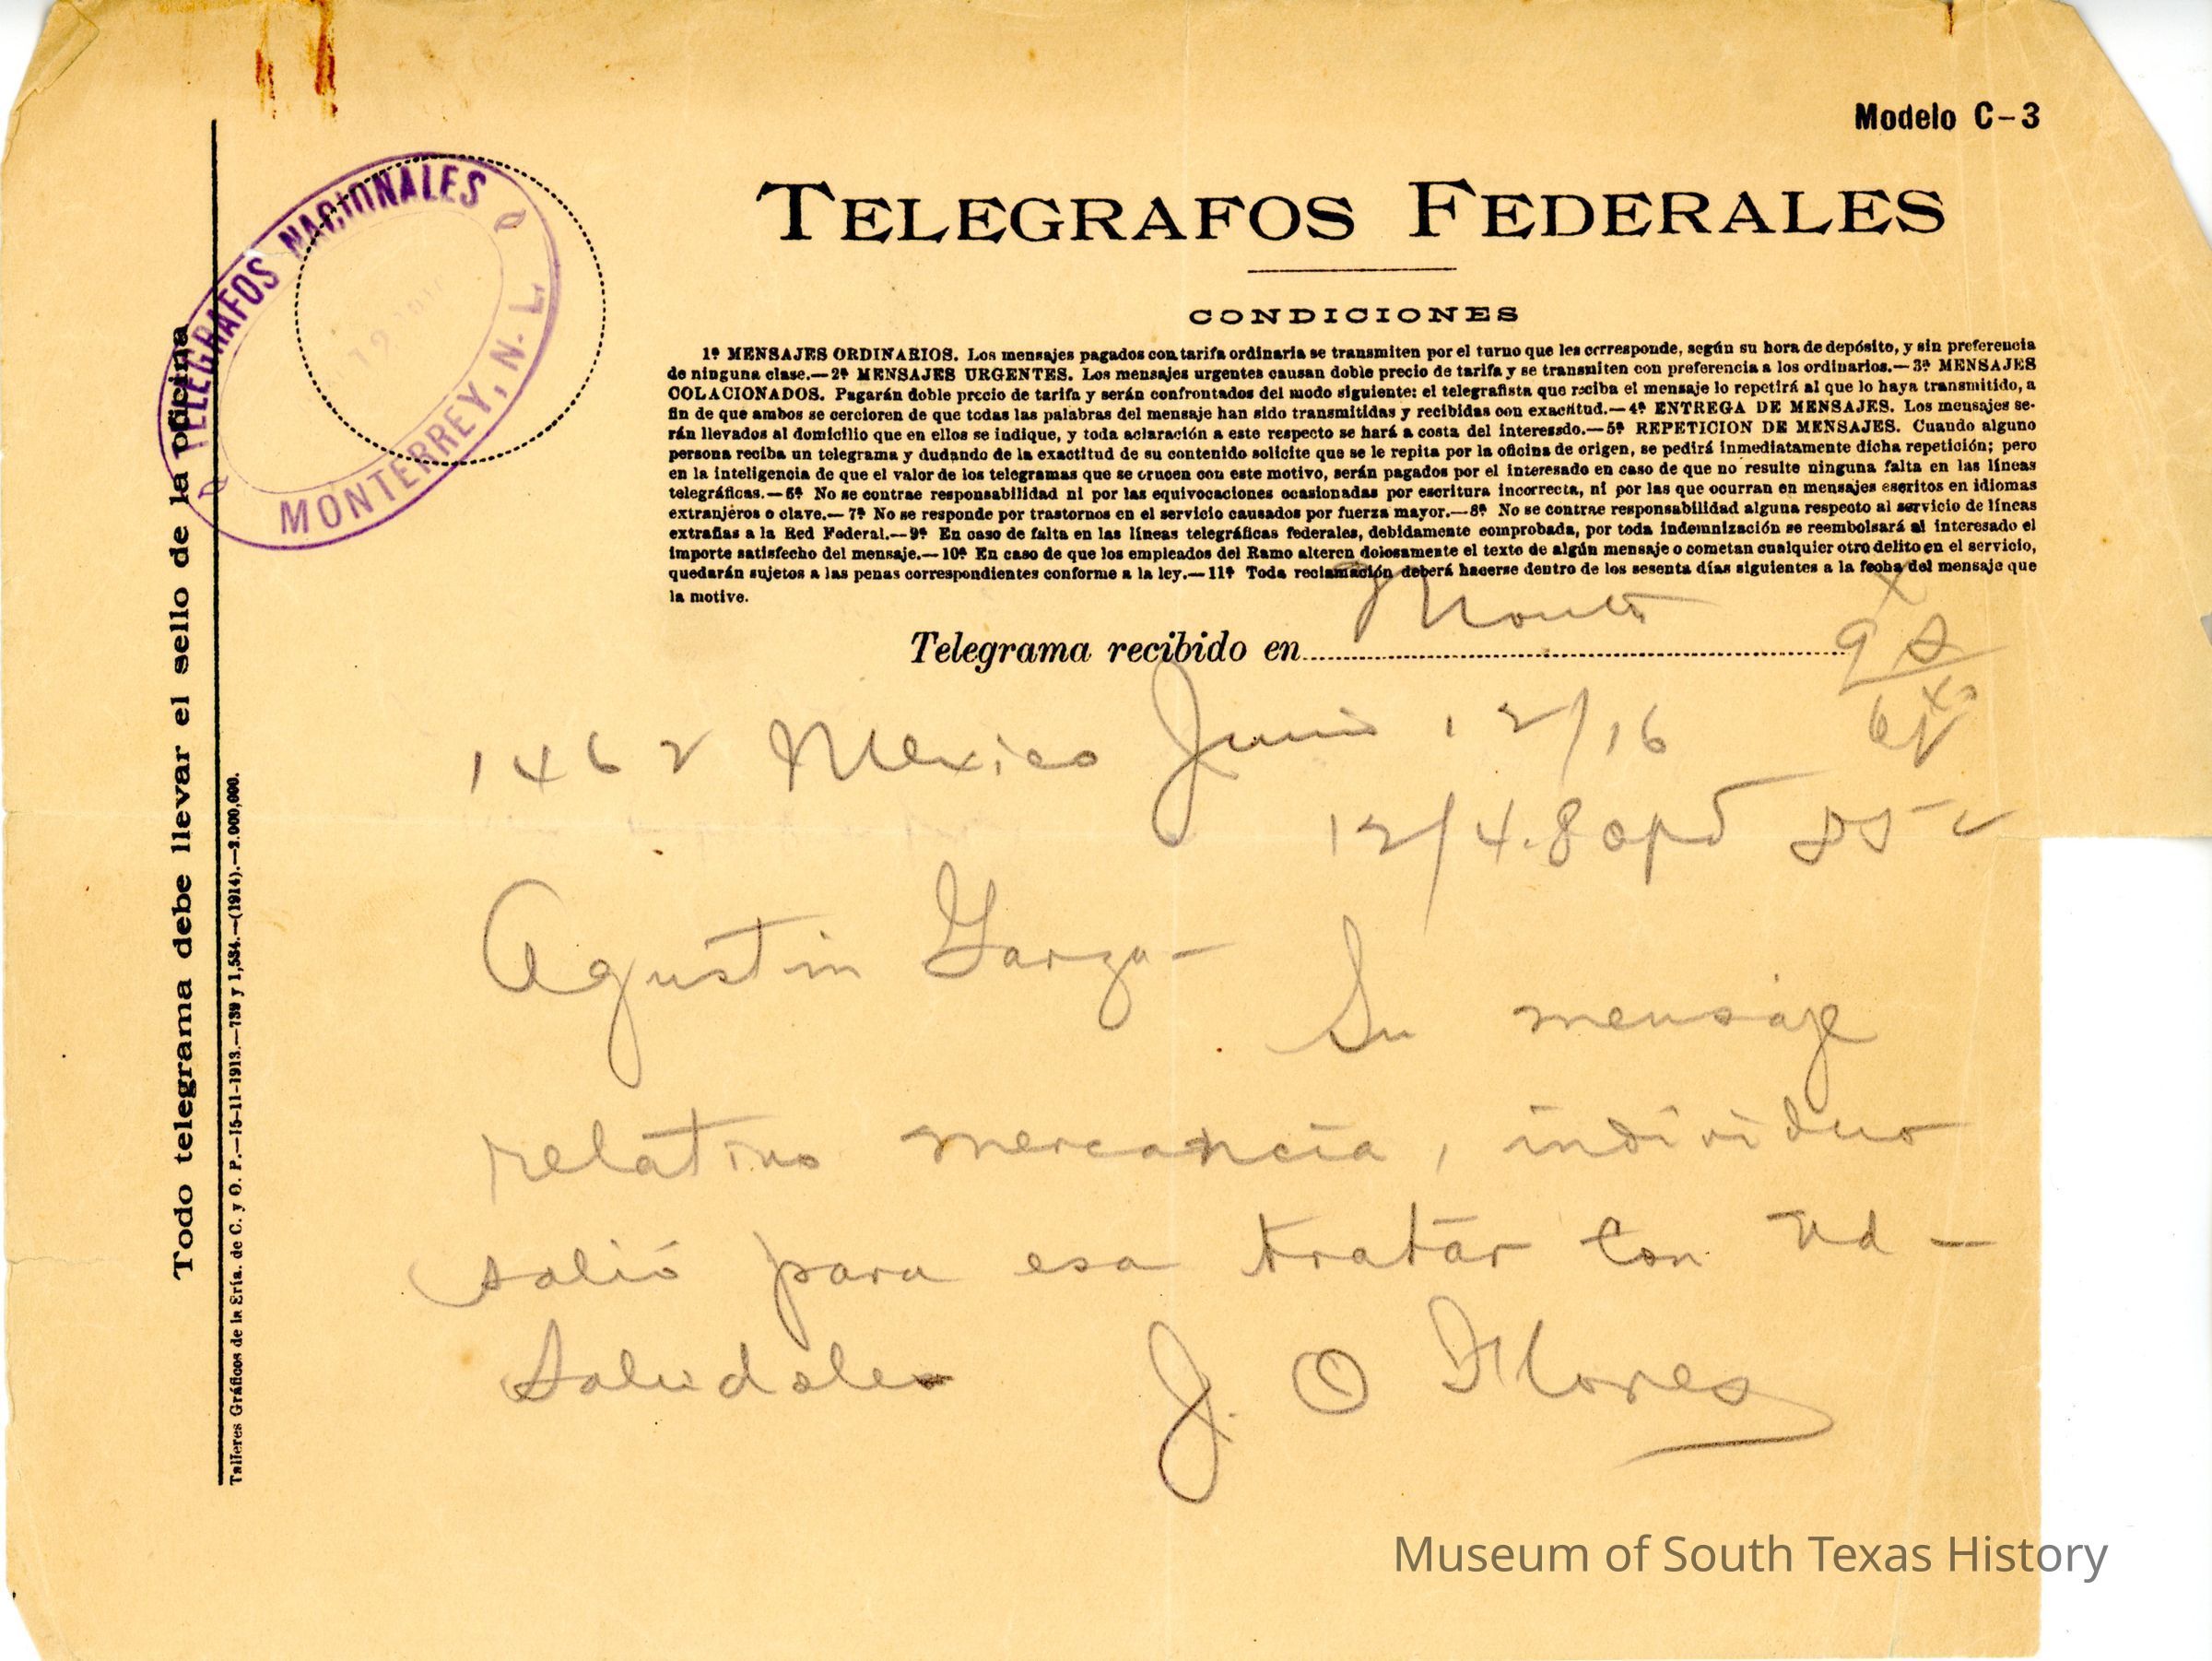 Modelo C-3
TELEGRAFOS FEDERALES
CONDICIONES
1ª MENSAJES ORDINARIOS. Los mensajes pagados con tarifa ordinaria se transmiten por el turno que les corresponde, según su hora de depósito, y sin preferencia
de ninguna clase.—2ª MENSAJES URGENTES. Los mensajes urgentes causan doble precio de tarifa y se transmiten con preferencia a los ordinarios.—3ª MENSAJES
COLACIONADOS. Pagarán doble precio de tarifa y serán confrontados del modo siguiente: el telegrafista que reciba el mensaje lo repetirá al que lo haya transmitido, a
fin de que ambos se cercioren de que todas las palabras del mensaje han sido transmitidas y recibidas con exactitud.—4ª ENTREGA DE MENSAJES. Los mensajes se-
rán llevados al domicilio que en ellos se indique, y toda aclaración a este respecto se hará a costa del interesado.—5ª REPETICION DE MENSAJES. Cuando alguno
persona reciba un telegrama y dudando de la exactitud de su contenido solicite que se le repita por la oficina de origen, se pedirá inmediatamente dicha repetición; pero
en la inteligencia de que el valor de los telegramas que se crucen con este motivo, serán pagados por el interesado en caso de que no resulte ninguna falta en las líneas
telegráficas.—6ª No se contrae responsabilidad ni por las equivocaciones ocasionadas por escritura incorrecta, ni por las que ocurran en mensajes escritos en idiomas
extranjeros o clave.—7ª No se responde por trastornos en el servicio causados por fuerza mayor.—8ª No se contrae responsabilidad alguna respecto al servicio de líneas
extrañas a la Red Federal.—9ª En caso de falta en las líneas telegráficas federales, debidamente comprobada, por toda indemnización se reembolsará al interesado el
importe satisfecho del mensaje.—10ª En caso de que los empleados del Ramo alteren dolosamente el texto de algún mensaje o cometan cualquier otro delito en el servicio,
quedarán sujetos a las penas correspondientes conforme a la ley.—11ª Toda reclamación deberá hacerse dentro de los sesenta días siguientes a la fecha del mensaje que
la motive.
Telegrama recibido en
1462 Mexico Junio 12/16
12/4.80
Agustin Garza-
Su mensaje
relativo mercancía, individuo
salió para esa tratar con Ud -
Saludales
J. O Flores
TELEGRAFOS NACIONALES
MONTERREY, N. L.
Todo telegrama debe llevar el sello de la oficina
Talleres Gráficos de la Sría. de C. y O. P.—15-11-1913.—739 y 1,534.—(1914).—2.000,000.
Museum of South Texas History